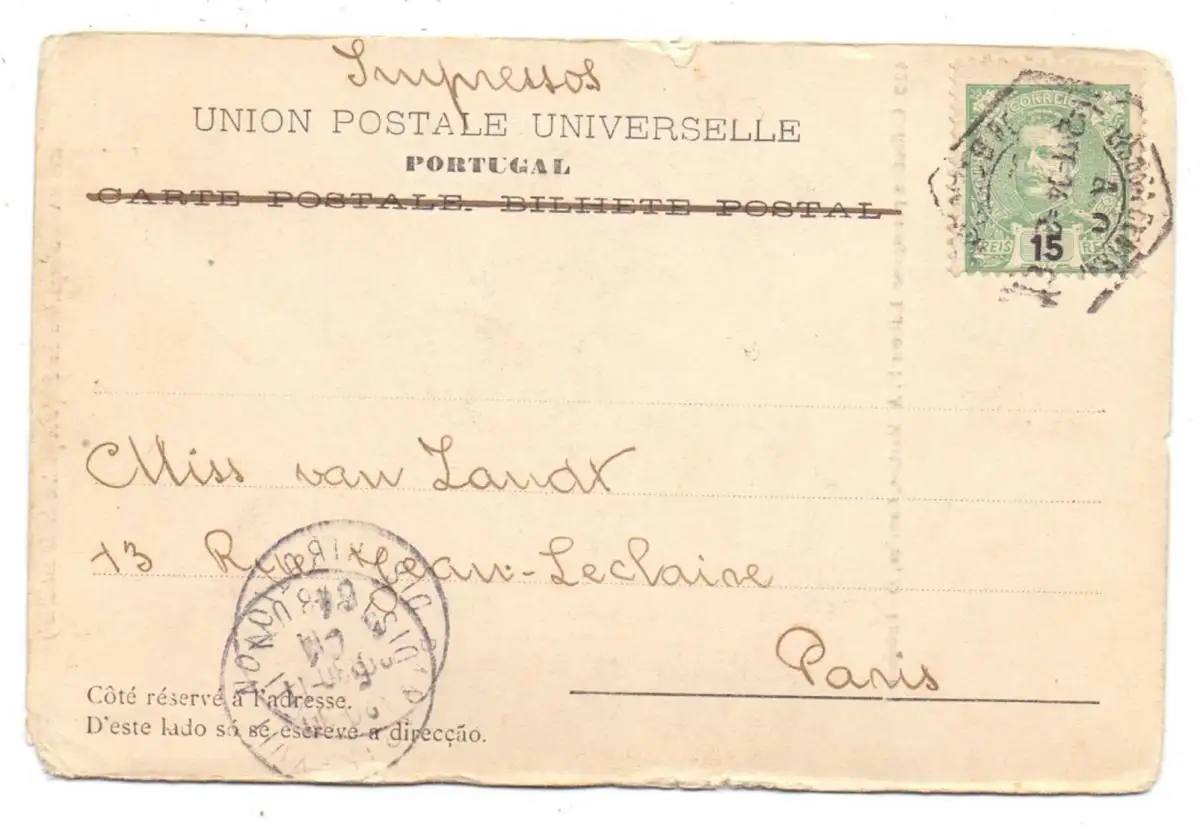 Impressos
UNION POSTALE UNIVERSELLE
PORTUGAL
CARTE POSTALE. BILHETE POSTAL
CORREIOS
15
REIS REIS
Miss van Zandt
13 Rue Jean-Leclaire
Paris
Côté réservé à l'adresse.
D'este lado só se escreve a direcção.
DISTRIBUTION